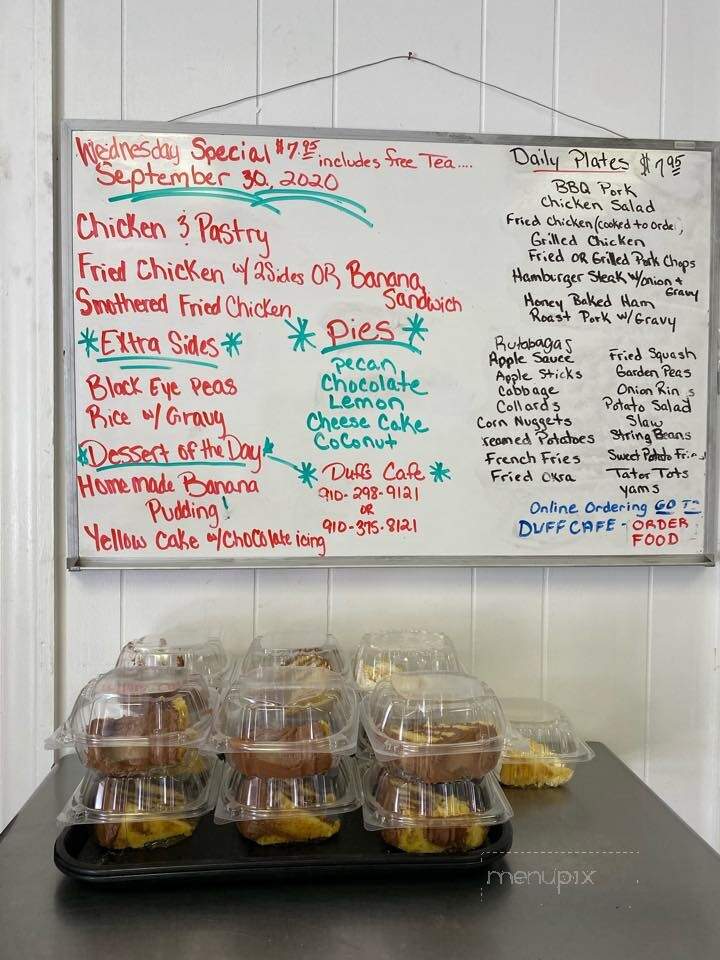 Wednesday Special $7.95 includes free Tea....
September 30, 2020
Chicken & Pastry
Fried Chicken w/ 2 Sides OR Banana Sandwich
Smothered Fried Chicken
*Extra Sides*
Black Eye Peas
Rice w/ Gravy
*Dessert of the Day*
Homemade Banana
Pudding!
Yellow Cake w/Chocolate icing
*Pies*
Pecan
Chocolate
Lemon
Cheese Cake
Coconut
*Duffs Cafe*
910-298-9121
OR
910-375-8121
Daily Plates $7.95
BBQ Pork
Chicken Salad
Fried Chicken (cooked to orde
Grilled Chicken
Fried OR Grilled Pork Chops
Hamburger Steak w/onion +
Gravy
Honey Baked Ham
Roast Pork w/ Gravy
Rutabagas
Apple Sauce
Apple Sticks
Cabbage
Collards
Corn Nuggets
reamed Potatoes
French Fries
Fried Okra
Fried Squash
Garden Peas
Onion Rin s
Potato Salad
Slaw
String Beans
Sweet Potato Frie
Tator Tots
yams
Online Ordering GO TO
DUFFCAFE - ORDER
FOOD
menupix